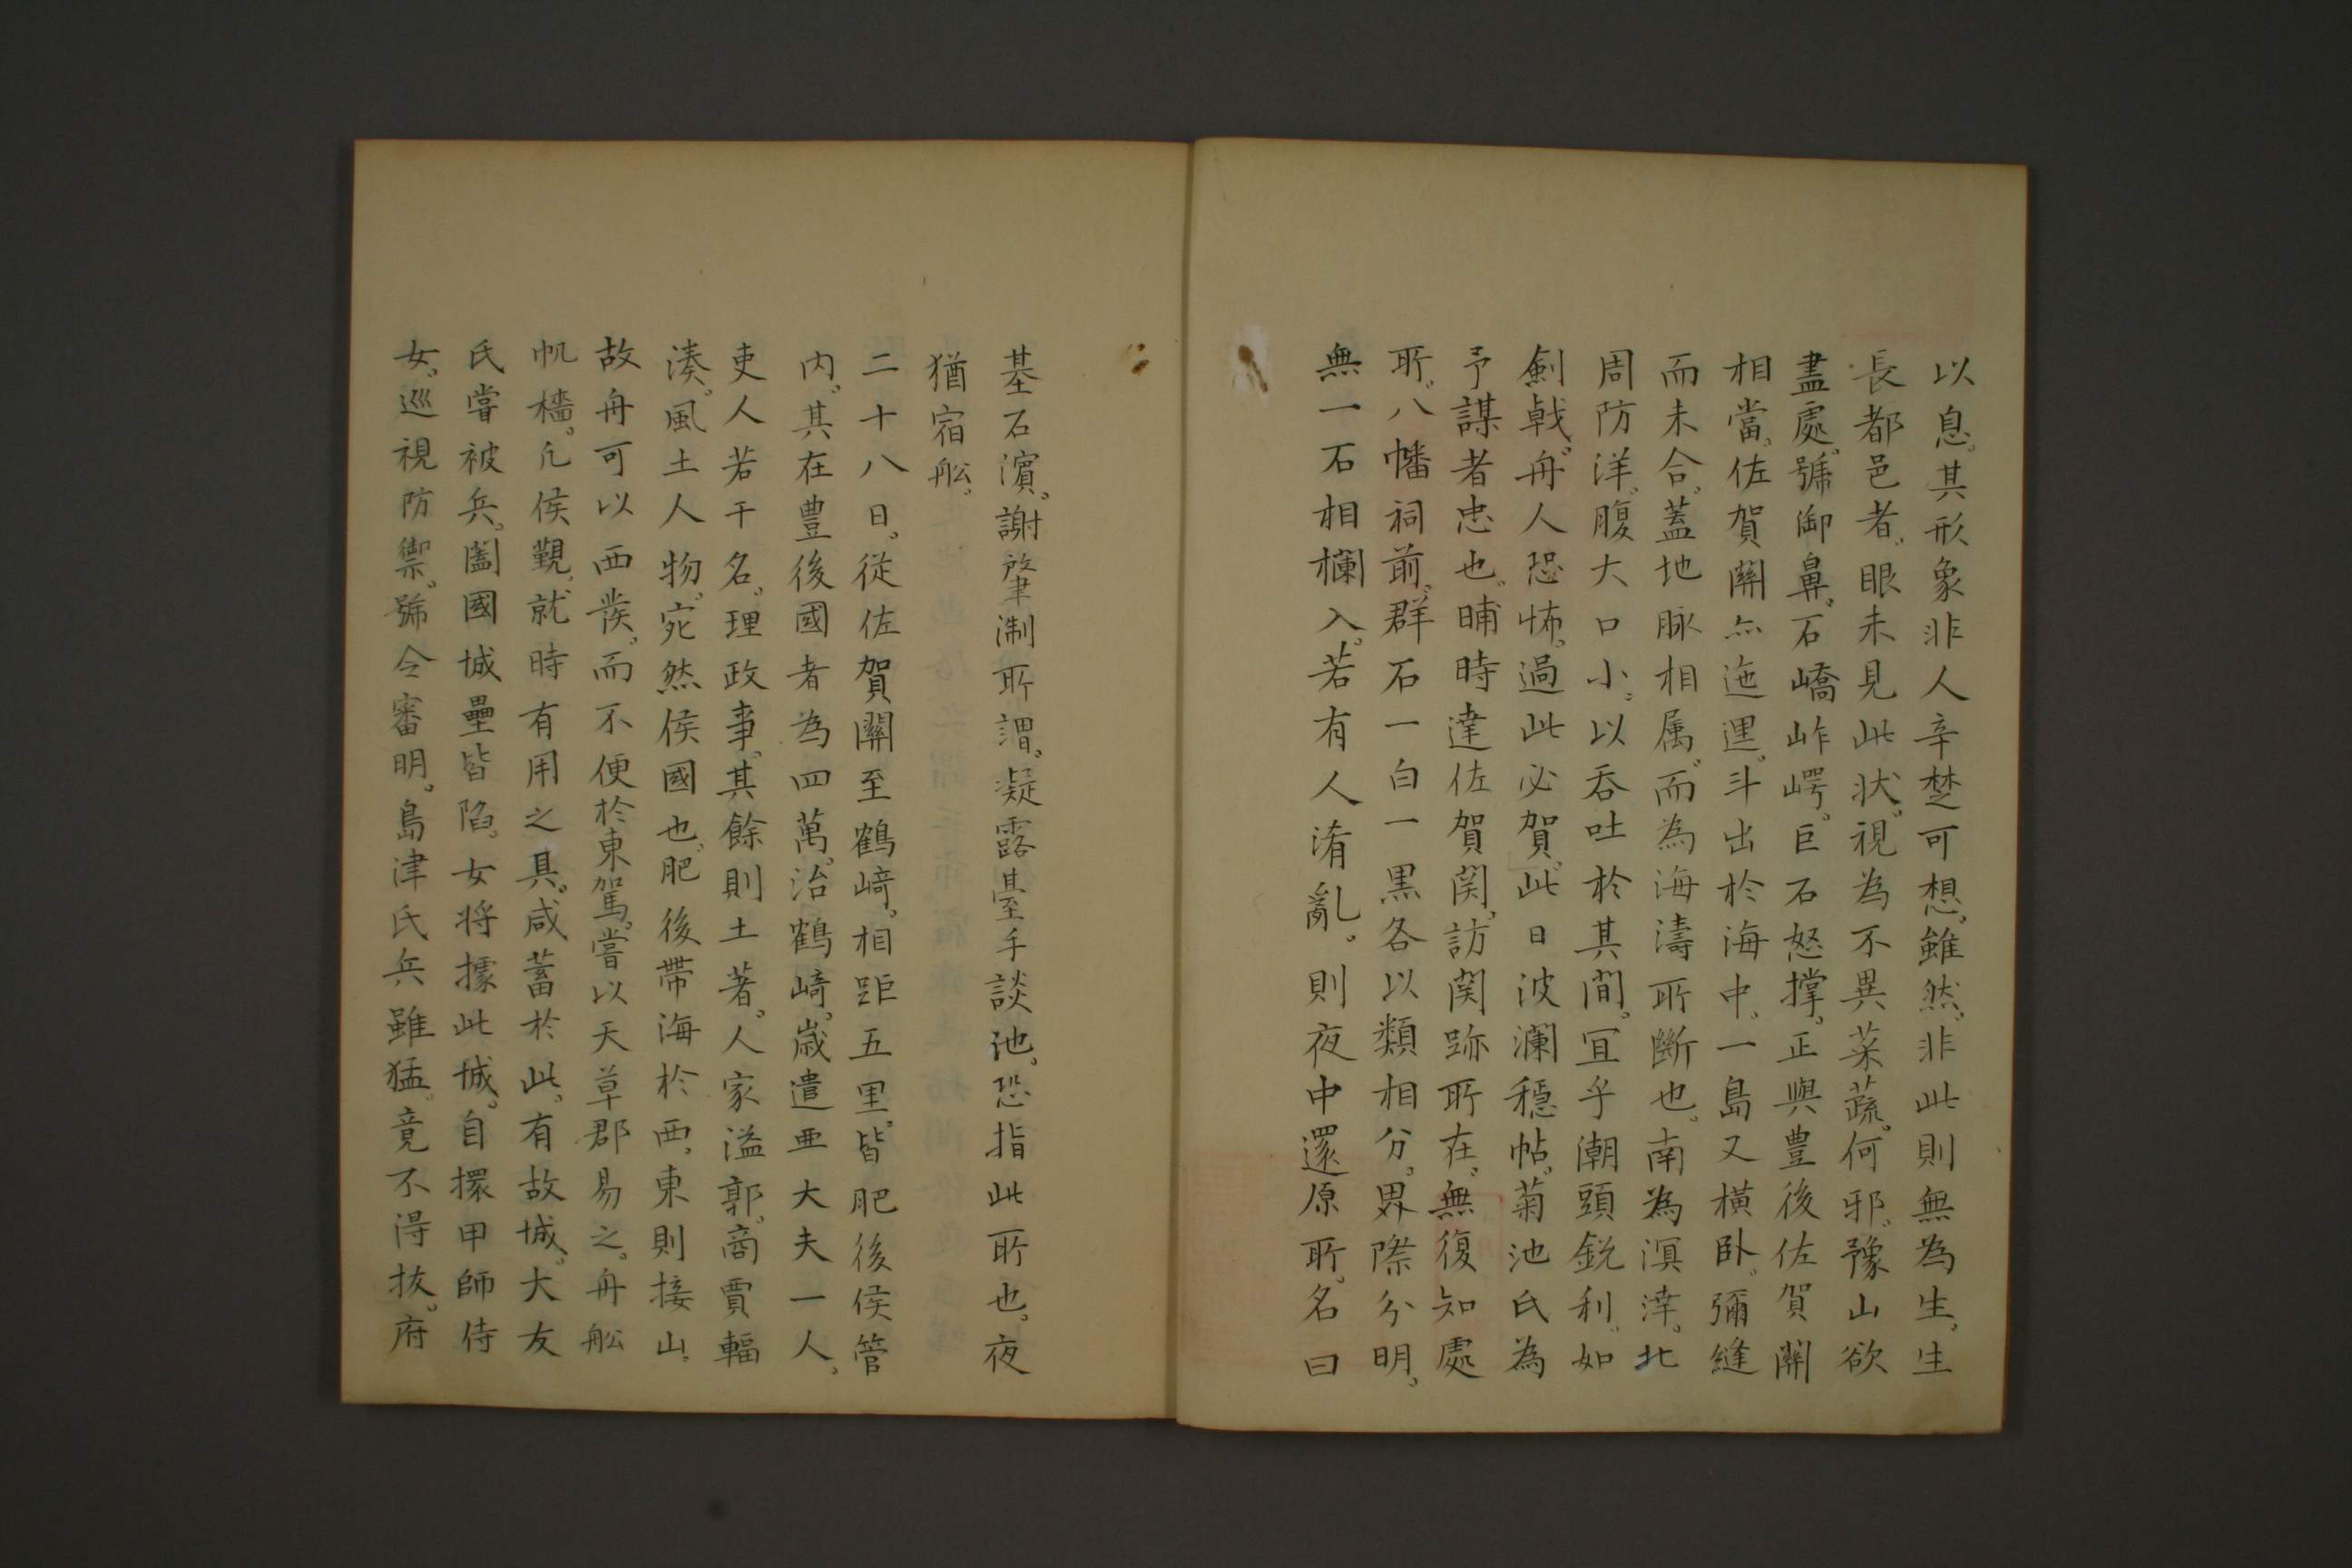 以息。其形象非人辛楚可想。雖然。非此則無為生。生
長都邑者。眼未見此状。視為不異菜蔬。何邪。豫山欲
盡處。號御鼻。石嶠岞崿。巨石怒撑。正與豊後佐賀關
相當。佐賀關亦迤邐。斗出於海中。一島又横卧。彌縫
而未合。蓋地脉相属。而為海濤所斷也。南為溟涬。北
周防洋。腹大口小。以吞吐於其間。宜乎潮頭鋭利。如
劍戟。舟人恐怖。過此必賀。此日波瀾穩帖。菊池氏為
予謀者忠也。晡時達佐賀関。訪関跡所在。無復知處
所。八幡祠前。群石一白一黒各以類相分。界際分明。
無一石相欄入。若有人淆亂。則夜中還原所。名曰
基石濵。謝肇淛所謂。凝露臺手談池。恐指此所也。夜
猶宿舩。
二十八日。從佐賀關至鶴﨑。相距五里。皆肥後侯管
内。其在豊後國者為四萬。治鶴﨑。歳遣亜大夫一人。
吏人若干名。理政事。其餘則土著。人家溢郭。商賈輻
湊。風土人物。宛然侯國也。肥後帶海於西。東則接山。
故舟可以西發。而不便於東駕。嘗以天草郡易之。舟舩
帆檣。凢侯覲。就時有用之具。咸蓄於此。有故城。大友
氏嘗被兵。闔國城壘皆陷。女将據此城。自擐甲師侍
女。巡視防禦。號令審明。島津氏兵雖猛。竟不得抜。府